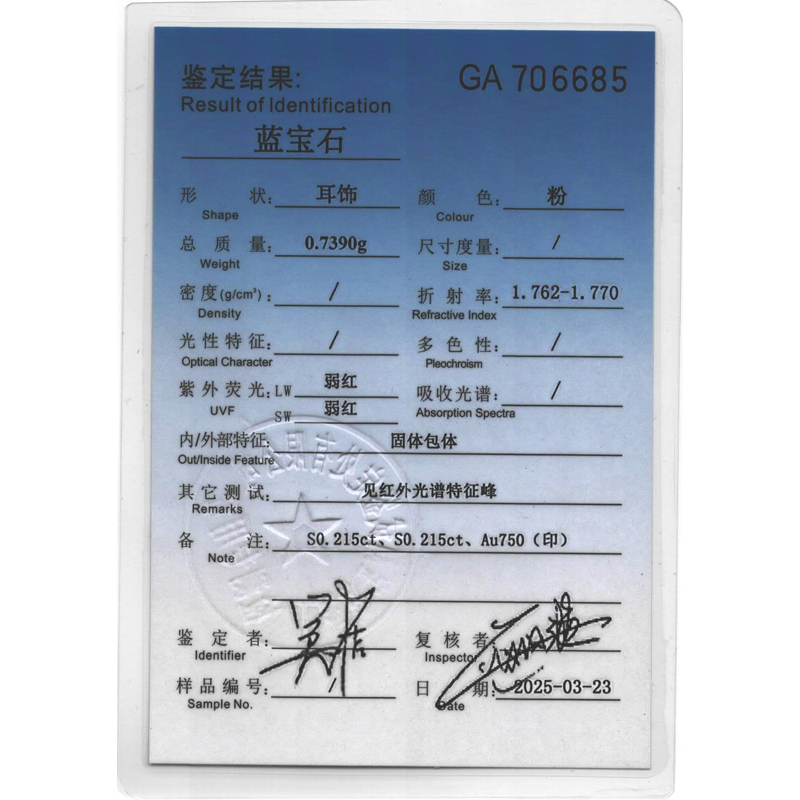 鉴定结果: GA 706685
Result of Identification
蓝宝石
形 状: 耳饰 颜 色: 粉
Shape Colour
总 质 量: 0.7390g 尺寸度量: /
Weight Size
密度(g/cm³): / 折 射 率: 1.762-1.770
Density Refractive Index
光性特征: / 多 色 性: /
Optical Character Pleochroism
紫外荧光: LW 弱红 吸收光谱: /
UVF SW 弱红 Absorption Spectra
内/外部特征: 固体包体
Out/Inside Feature
其它测试: 见红外光谱特征峰
Remarks
备 注: S0.215ct、S0.215ct、Au750（印）
Note
鉴 定 者: 复 核 者:
Identifier Inspector
样品编号: / 日 期: 2025-03-23
Sample No. Date